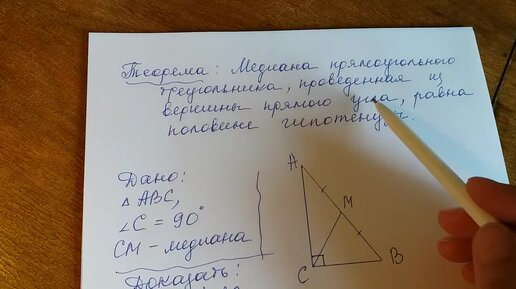 Теорема: Медиана прямоугольного
треугольника, проведенная из
вершины прямого угла, равна
половине гипотенузы.
Дано:
△ ABC,
∠C = 90°
CM – медиана
Доказать:
A
M
C
B